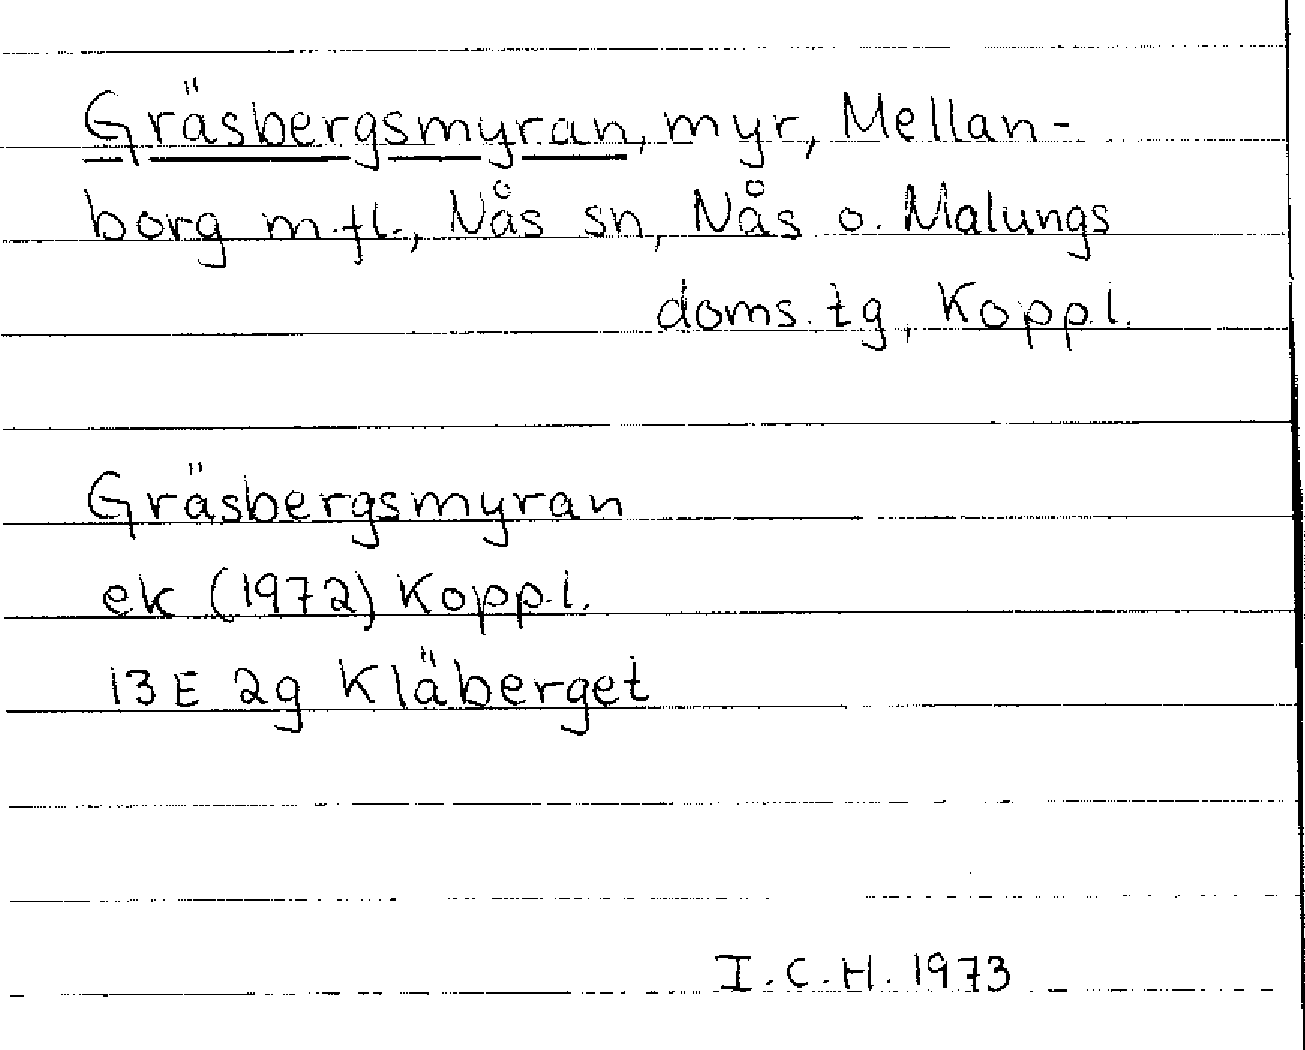 Gräsbergsmyran, myr, Mellan-
borg m.fl., Nås sn, Nås o. Malungs
doms.tg, Koppl.
Gräsbergsmyran
ek (1972) Koppl.
13E 2g Kläberget
I.C.H. 1973